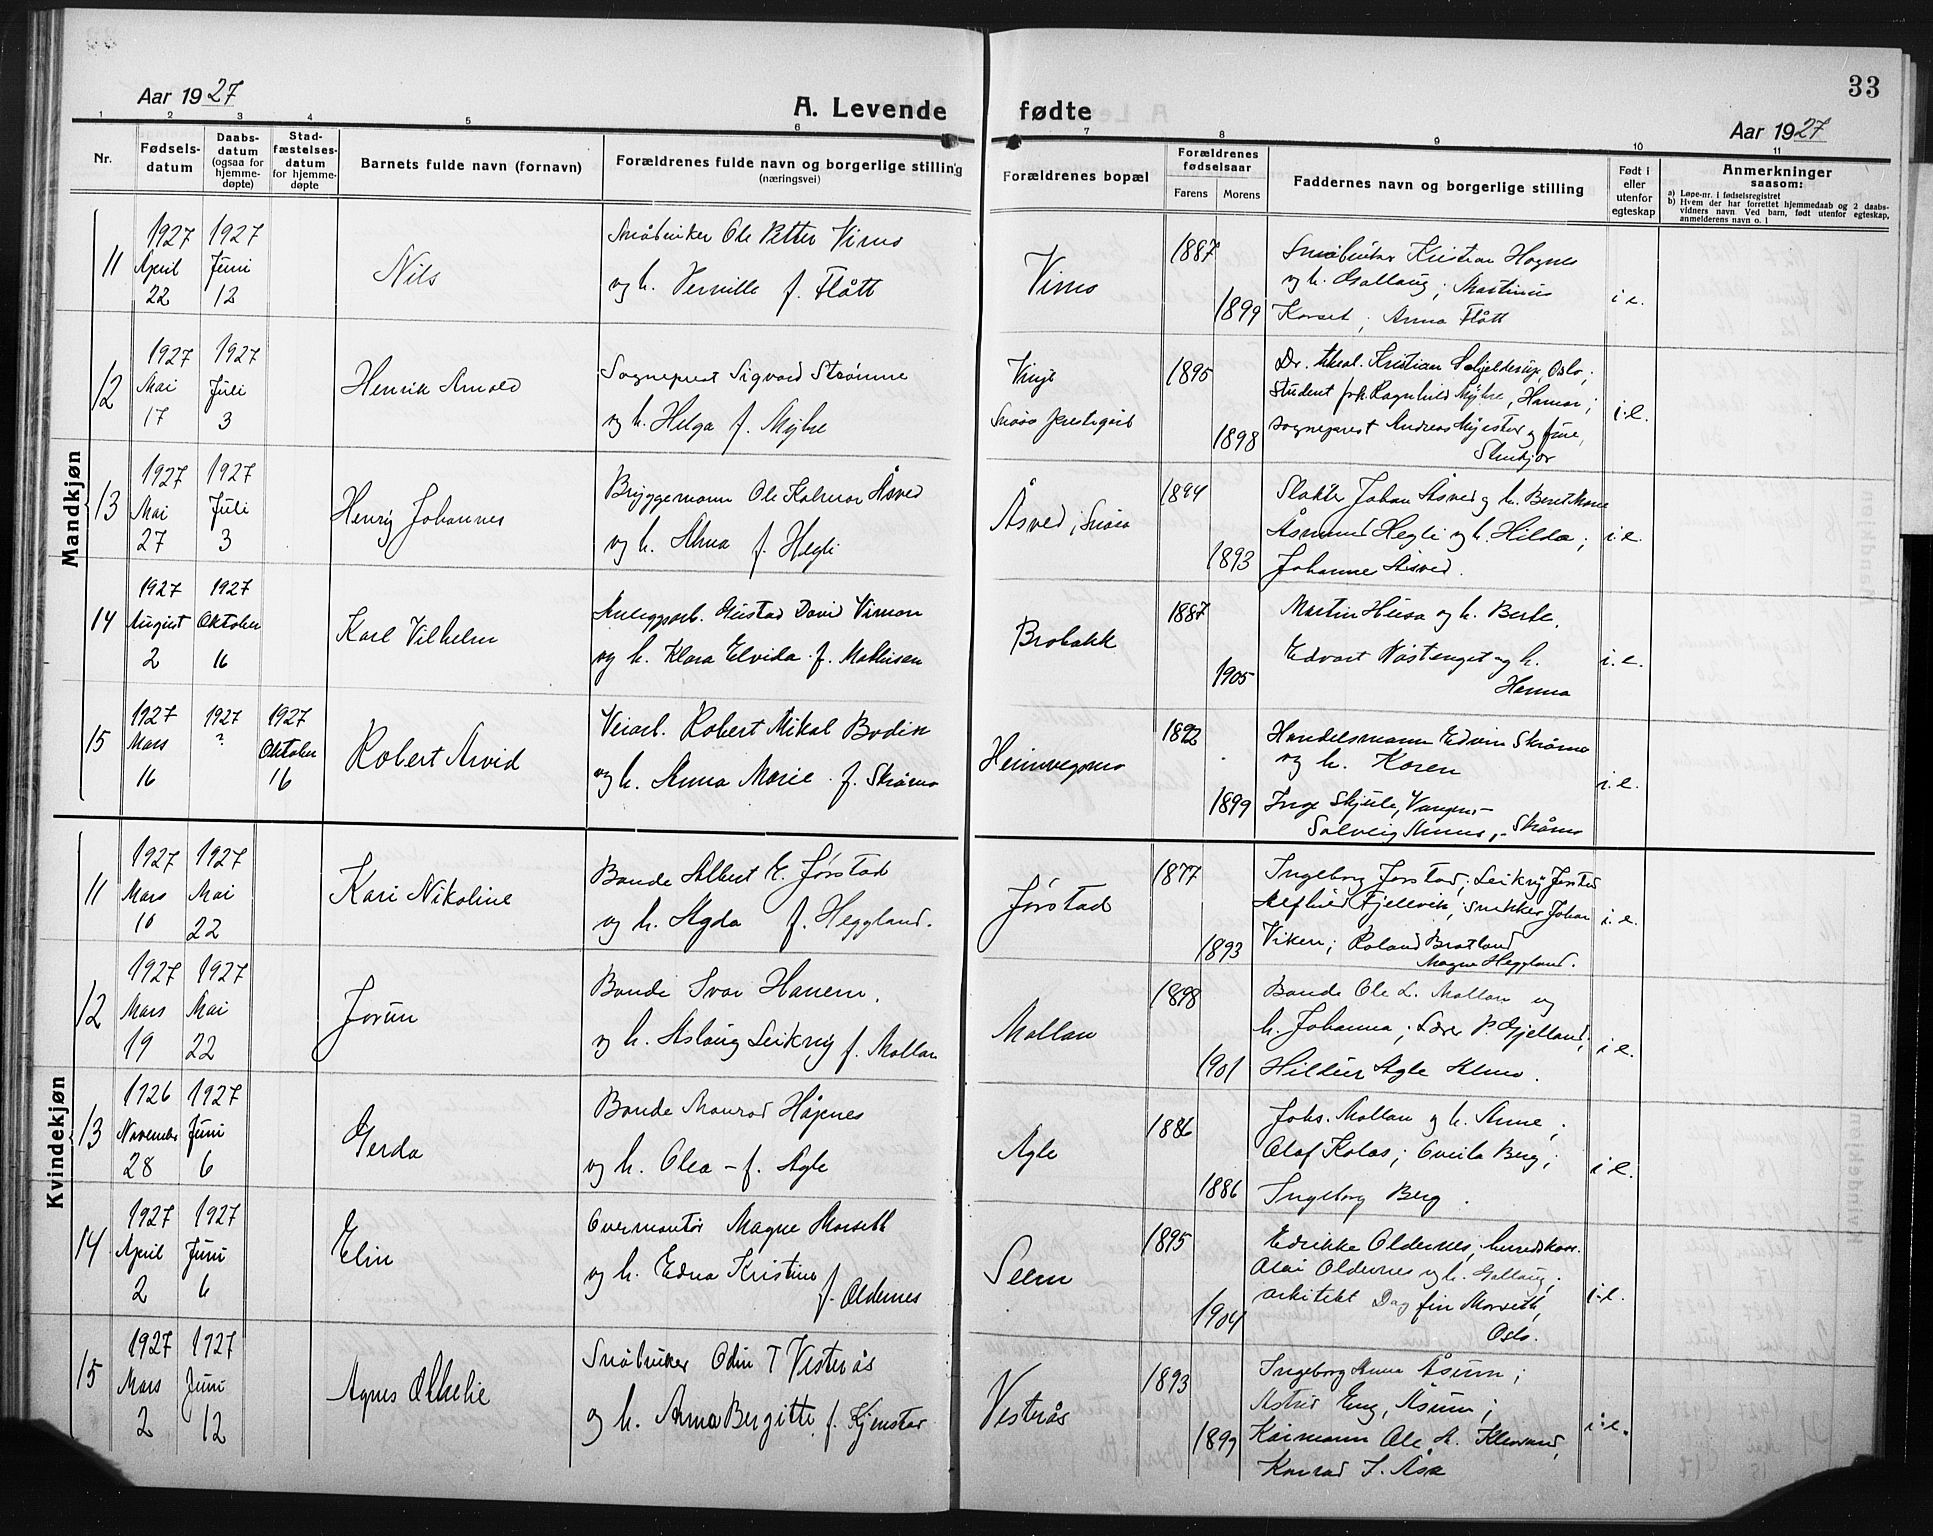 33
Aar 1927
A. Levende fødte
Aar 1927
1 2 3 4 5 6 7 8 9 10 11
Nr.
Fødselsdatum
Daabsdatum (ogsaa for hjemmedøpte)
Stadfæstelsesdatum for hjemmedøpte
Barnets fulde navn (fornavn)
Forældrenes fulde navn og borgerlige stilling (næringsvei)
Forældrenes bopæl
Forældrenes fødselsaar
Farens Morens
Faddernes navn og borgerlige stilling
Født i eller utenfor egteskap
Anmerkninger saasom:
a) Løpe-nr. i fødselsregistret
b) Hvem der har forrettet hjemmedaab og 2 daabsvidners navn. Ved barn, født utenfor egteskap, anmelderens navn o. l
Mandkjøn
11
1927 April 22
1927 Juni 12
Nils
Småbruker Ole Petter Vinos
og h. f. Flått
1887
1899
Småbruker Kristian Hognes
og h. ; Martinus
; Anna Flått
i e.
12
1927 Mai 17
1927 Juli 3
Henrik Arnold
Sogneprest Sigvard Strømme
og h. Helga f. Myhre
Snåsa prestegård
1895
1898
Dr. theol. Kristian Schjelderup, Oslo;
Student frk. Ragnhild Myhre, Hamar;
sogneprest Andreas og frue,
Stenkjær
i e.
13
1927 Mai 27
1927 Juli 3
Henry Johannes
Byggemann Ole Kolmar Åsved
og h. Alma f. Hegli
Åsved, Snåsa
1894
1893
Slakter Johan Åsved og h. Beret Marie
Åsmund Hegli og h. Hilda;
Johanne Åsved.
i e.
14
1927 August 2
1927 Oktober 16
Karl Vilhelm
Anleggsarb. Gustad David Viman
og h. Klara Elvida f. Mathisen
Brobakk
1887
1905
Martin Husa og h. Berte.
Edvart og h.
Hanna
i e.
15
1927 Mars 16
1927 ?
1927 Oktober 16
Robert Arvid
Veiarb. Robert Mikal Bodin
og h. Anna Marie f. Skrømo
Heimvegsmo
1892
1899
Handelsmann Edvin Skrømo
og h. Karen
Inge Skjule,
Solveig , Skrømo
i e.
Kvindekjøn
11
1927 Mars 10
1927 Mai 22
Kari Nikoline
Bonde Albert E. Jørstad
og h. Agda f. Heggland.
Jørstad
1877
1893
Ingeborg Jørstad; Leikny Jørstad
Alfhild Fjellvik; snekker Johan
Viken; Roland Bratland
Magne Heggland.
i e.
12
1927 Mars 19
1927 Mai 22
Jorun
Bonde Ivar Hanem,
og h. Aslaug Leikny f. Mollan
Mollan
1898
1901
Bonde Ole L. Mollan og
h. Johanna; Lærer P. Gjelland;
Hildur Agle Almo.
i e.
13
1926 November 28
1927 Juni 6
Gerda
Bonde Monrad Høynes
og h. Olea - f. Agle
Agle
1886
1886
Johs. Mollan og h. Anne;
Olaf Kolås; Berg;
Ingeborg Berg.
i e.
14
1927 April 2
1927 Juni 6
Elin
Overmontør Magne Morseth
og h. Edna Kristine
f. Oldernes
Seem
1895
1904
Edrikke Oldernes, herredskass.
Olai Oldernes og h. Gollaug;
arkitekt Dagfin Morseth,
Oslo.
i e.
15
1927 Mars 2
1927 Juni 12
Agnes Othelie
Småbruker Odin T Vesterås
og h. Anna Bergitte, f. Kjenstad
Vesterås
1893
1899
Ingeborg Anna Åsum;
Astrid Eng, Åsum;
Kaimann Ole A. Klevsand,
Konrad J. Åsn
i e.